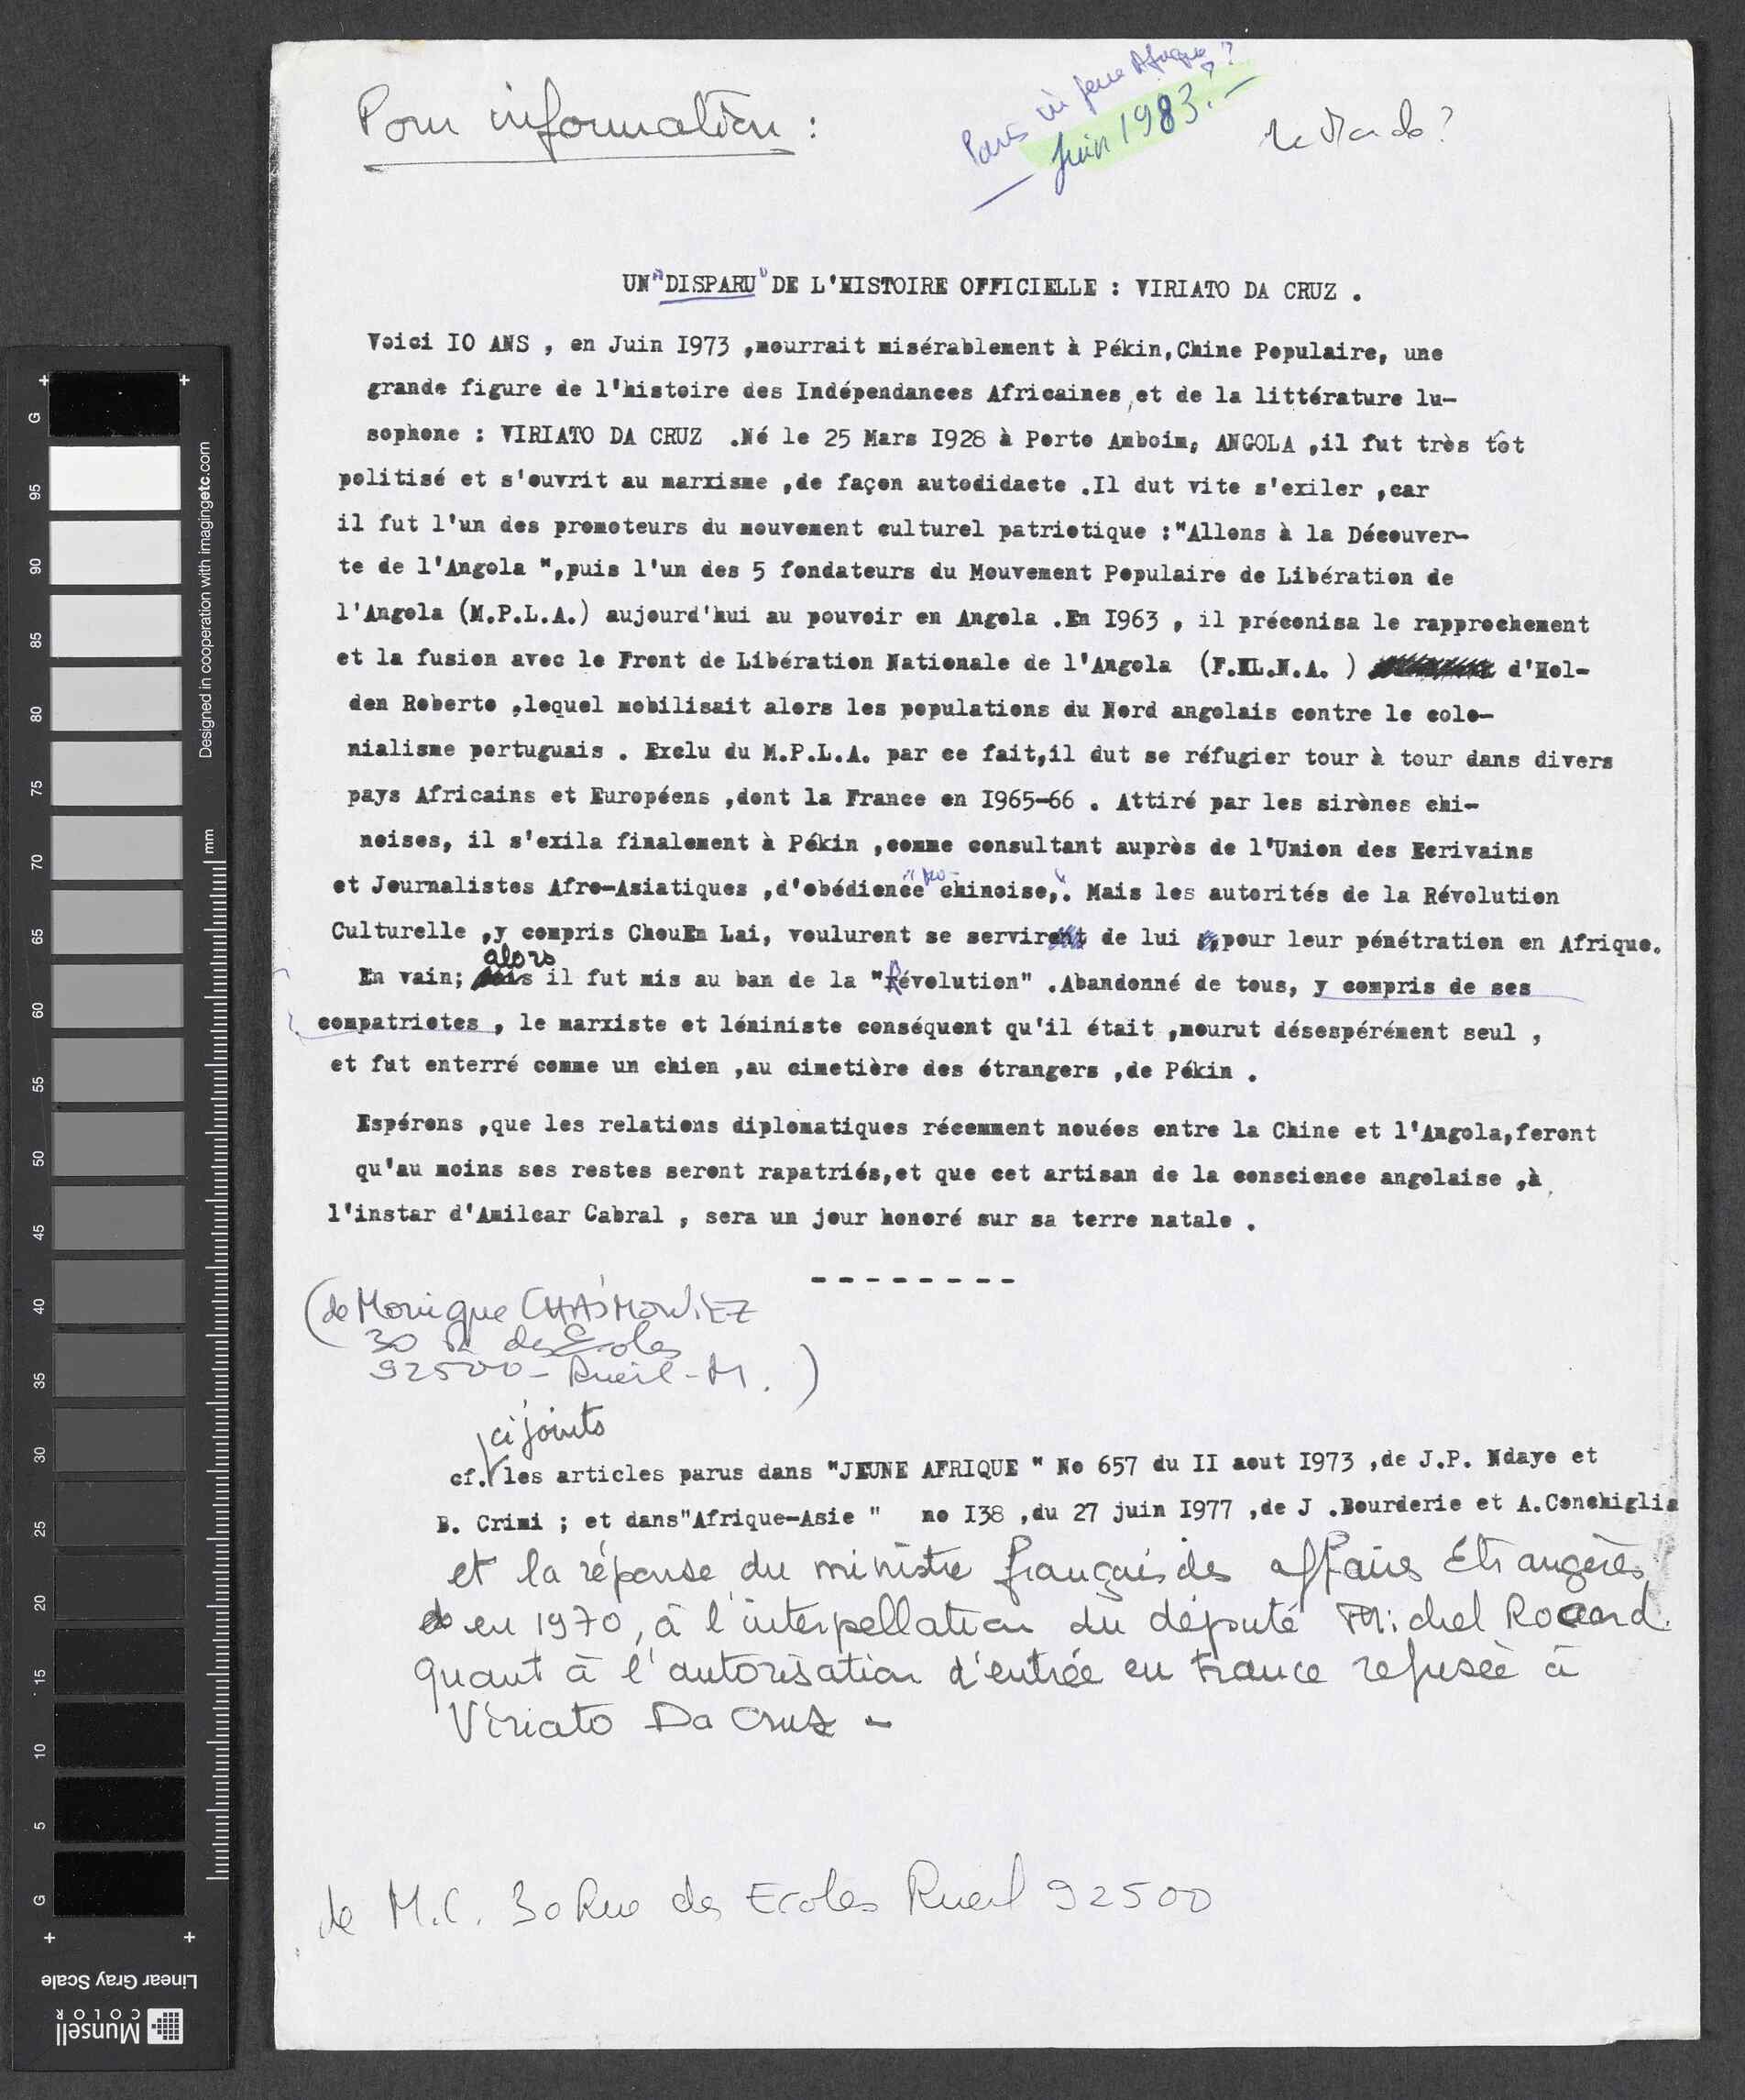 Pour information :
Paru in Jeune Afrique ?
Juin 1983.-
le Monde ?
UN "DISPARU" DE L'HISTOIRE OFFICIELLE : VIRIATO DA CRUZ .
Voici IO ANS , en Juin I973 ,mourrait misérablement à Pékin,Chine Populaire, une
grande figure de l'histoire des Indépendances Africaines,et de la littérature lu-
sophone : VIRIATO DA CRUZ .Né le 25 Mars I928 à Porto Amboim, ANGOLA ,il fut très tôt
politisé et s'ouvrit au marxisme ,de façon autodidacte .Il dut vite s'exiler ,car
il fut l'un des promoteurs du mouvement culturel patriotique :"Allons à la Découver-
te de l'Angola ",puis l'un des 5 fondateurs du Mouvement Populaire de Libération de
l'Angola (M.P.L.A.) aujourd'hui au pouvoir en Angola .En I963 , il préconisa le rapprochement
et la fusion avec le Front de Libération Nationale de l'Angola (F.NL.N.A. ) d'Hol-
den Roberto ,lequel mobilisait alors les populations du Nord angolais contre le colo-
nialisme portuguais . Exclu du M.P.L.A. par ce fait,il dut se réfugier tour à tour dans divers
pays Africains et Européens ,dont la France en I965-66 . Attiré par les sirènes chi-
noises, il s'exila finalement à Pékin ,comme consultant auprès de l'Union des Ecrivains
et Journalistes Afro-Asiatiques ,d'obédience "pro-chinoise,". Mais les autorités de la Révolution
Culturelle ,y compris ChouEn Lai, voulurent se servir de lui ,pour leur pénétration en Afrique.
En vain; alors il fut mis au ban de la "Révolution" .Abandonné de tous, y compris de ses
compatriotes , le marxiste et léniniste conséquent qu'il était ,mourut désespérément seul ,
et fut enterré comme un chien ,au cimetière des étrangers ,de Pékin .
Espérons ,que les relations diplomatiques récemment nouées entre la Chine et l'Angola,feront
qu'au moins ses restes seront rapatriés,et que cet artisan de la conscience angolaise ,à
l'instar d'Amilcar Cabral , sera un jour honoré sur sa terre natale .
--------
(de Monique CHAJMOWIEZ
30 R. des Ecoles
92500 - Rueil - M. )
ci joints
cf. les articles parus dans "JEUNE AFRIQUE " No 657 du II aout I973 ,de J.P. Ndaye et
B. Crimi ; et dans"Afrique-Asie " no I38 ,du 27 juin I977 ,de J .Bourderie et A.Conchiglia
et la réponse du ministre français des affaires Etrangères
en 1970, à l'interpellation du député Michel Rocard.
quant à l'autorisation d'entrée en France refusée à
Viriato Da Cruz -
de M.C. 30 Rue des Ecoles Rueil 92500
G 95 90 85 80 75 70 65 60 55 50 45 40 35 30 25 20 15 10 5 G
mm
Designed in cooperation with imagingetc.com
Linear Gray Scale
Munsell
COLOR